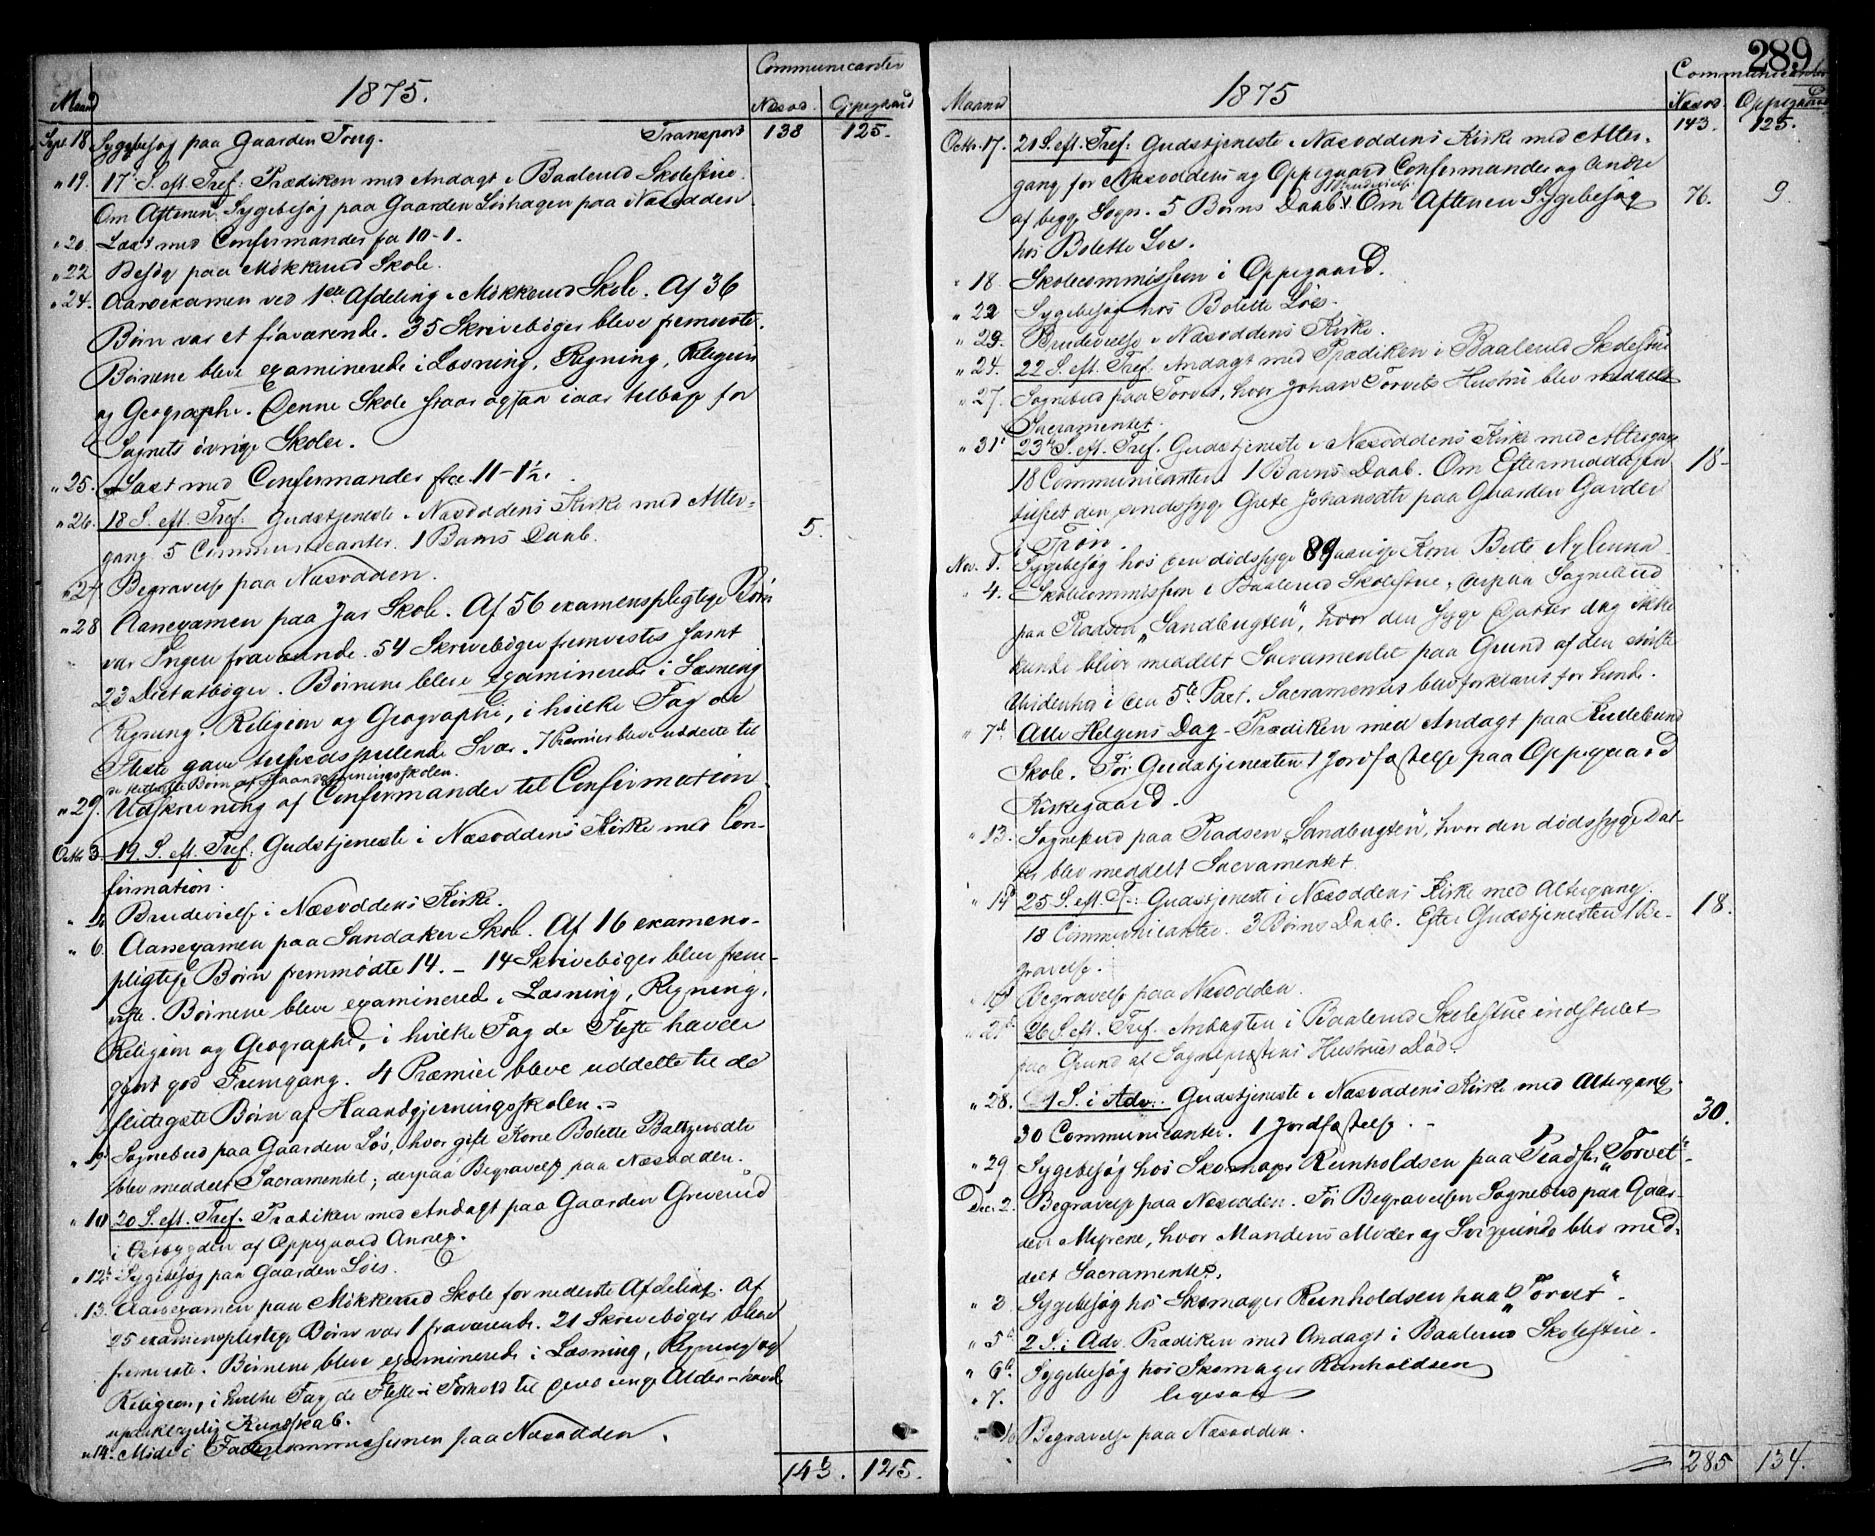 Communicanter
Maaned 1875. Næsod. Oppegaard
Sept 18 Sygebesøg paa Gaarden Toug. Transport 138 125.
" 19. 17. S. eft. Tref: Prædiken med Andagt i Baalerud Skolestue.
Om Aftenen Sygebesøg paa Gaarden Lørhagen paa Næsodden
" 20 Læst med Confirmander fra 10-1.
" 22 Besøg paa Mökkerud Skole.
" 24. Aarsexamen ved 1ste Afdeling i Mökkerud Skole. Af 36
Børn var et fraværende. 35 Skrivebøger bleve fremviste.
Børnene bleve examinerede i Læsning, Regning, Religion
og Geographi. Denne Skole staar ogsaa iaar tilbage for
Sognets øvrige Skoler.
" 25. Læst med Confirmander fra 11-1½.
" 26. 18 S. eft. Tref: Gudstjeneste i Næsoddens Kirke med Alter-
gang. 5 Communicanter. 1 Barns Daab. 5.
" 27 Begravelse paa Næsodden.
" 28 Aarsexamen paa Jær Skole. Af 56 examenspligtige Børn
var Ingen fraværende. 54 Skrivebøger fremvistes samt
23 Dictatbøger. Børnene bleve examinerede i Læsning
Regning. Religion og Geographi, i hvilke Fag de
Fleste gave tilfredsstillende Svar. 7 Præmier bleve uddelte til
de flittigste Børn af Haandgjerningsskolen.
" 29. Udskrivning af Confirmander til Confirmation
Octbr 3. 19. S. eft. Tref: Gudstjeneste i Næsoddens Kirke med Con-
firmation.
" 4 Brudevielse i Næsoddens Kirke.
" 6. Aarsexamen paa Sandaker Skole. Af 16 examens-
pligtige Børn fremmødte 14. - 14 Skrivebøger blev frem-
viste. Børnene bleve examinerede i Læsning, Regning,
Religion og Geographi, i hvilke Fag de Fleste havde
gjort god Fremgang. 4 Præmier bleve uddelte til de
flittigste Børn af Haandgjerningsskolen.
" 9 Sognebud paa Gaarden Løs, hvor gift Kone Bolette Baltzersdtr
blev meddelt Sacramentet; derpaa Begravelse paa Næsodden.
" 10 20 S. eft. Tref. Prædiken med Andagt paa Gaarden Greverud
i Østbygden af Oppegaard Annex.
" 12t Sygebesøg paa Gaarden Løes.
" 13. Aarsexamen paa Mökkerud Skole for nederste Afdeling. Af
25 examenspligtige Børn var 1 fraværende. 21 Skrivebøger bleve
fremviste. Børnene bleve examinerede i Læsning, Regning og
Religion, i hvilke Fag de Fleste i Forhold til deres unge Alder havde
upaaklagelig Kundskab.
" 14. Møde i Fattigcommissionen paa Næsodden.
143. 125.
289
Communicanter
Maaned 1875 Næsod. Oppegaard
143. 125.
Octbr. 17. 21 S. eft. Tref: Gudstjeneste i Næsoddens Kirke med Alter-
gang for Næsoddens og Oppegaard Confirmander og Andre
af begge Sogn. 5 Børns Daab. 1 Brudevielse. Om Aftenen Sygebesøg 76. 9.
hos Bolette Løes.
" 18. Skolecommission i Oppegaard.
" 22 Sygebesøg hos Bolette Løes.
" 23. Brudevielse i Næsoddens Kirke.
" 24. 22 S. eft. Tref. Andagt med Prædiken i Baalerud Skolestue
" 27. Sognebud paa Torvet, hvor Johan Torvets Hustru blev meddelt
Sacramentet.
" 31t 23de S. eft. Tref. Gudstjeneste i Næsoddens Kirke med Altergang
18 Communicanter. 1 Barns Daab. Om Eftermiddagen 18-
tilseet den sindssyge Grete Johansdtr paa Gaarden Garder
i Frøn.
Nov. 1. Sygebesøg hos den dødssyge 89 aarige Kone Bertte Nylænna
" 4. Skolecommission i Baalerud Skolestue; derpaa Sognebud
paa Pladsen "Sandbugten", hvor den syge Datter dog ikke
kunde blive meddelt Sacramentet paa Grund af den
Uvidenhed i den 5te Part. Sacramentet blev forklaret for hende.
" 7d Alle Helgens Dag - Prædiken med Andagt paa Kullebund
Skole. Før Gudstjenesten 1 Jordfæstelse paa Oppegaard
Kirkegaard.
" 13. Sognebud paa Pladsen "Sandbugten", hvor den dødssyge Dat-
ter blev meddelt Sacramentet.
" 14d 25 S. eft. T.: Gudstjeneste i Næsoddens Kirke med Altergang.
18 Communicanter. 3 Børns Daab. Efter Gudstjenesten 1 Be- 18.
gravelse.
Begravelse paa Næsodden.
" 21d 26 S. eft. Tref. Andagten i Baalerud Skolestue indstillet
paa Grund af Sognepræstens Hustrues Død.
" 28. 1 S. i Adv.: Gudstjeneste i Næsoddens Kirke med Altergang.
30 Communicanter. 1 Jordfæstelse. 30.
" 29 Sygebesøg hos Skomager Reinholdsen paa Pladsen "Torvet".
Dec. 2. Begravelse paa Næsodden. Før Begravelsen Sognebud paa Gaar-
den Myrene, hvor Mandens Moder og Svigerinde blev med-
delt Sacramentet.
" 3 Sygebesøg hos Skomager Reinholdsen paa "Torvet".
" 5d 2 S. i Adv. Prædiken med Andagt i Baalerud Skolestue.
" 6te Sygebesøg hos Skomager Reinholdsen
" 7. ligesaa
" 10 Begravelse paa Næsodden.
285 134.